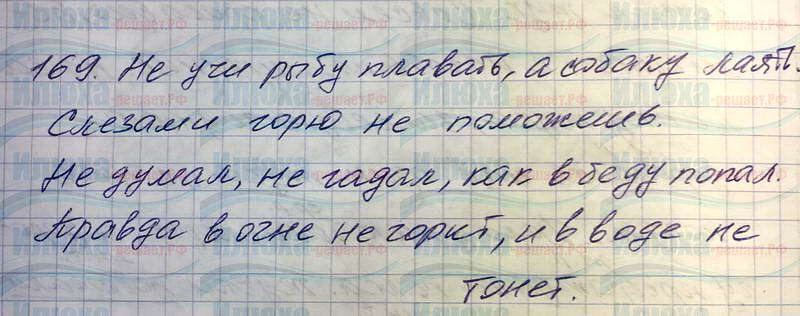 169. Не учи рыбу плавать, а собаку лаять.
Слезами горю не поможешь.
Не думал, не гадал, как в беду попал.
Правда в огне не горит, и в воде не
тонет.